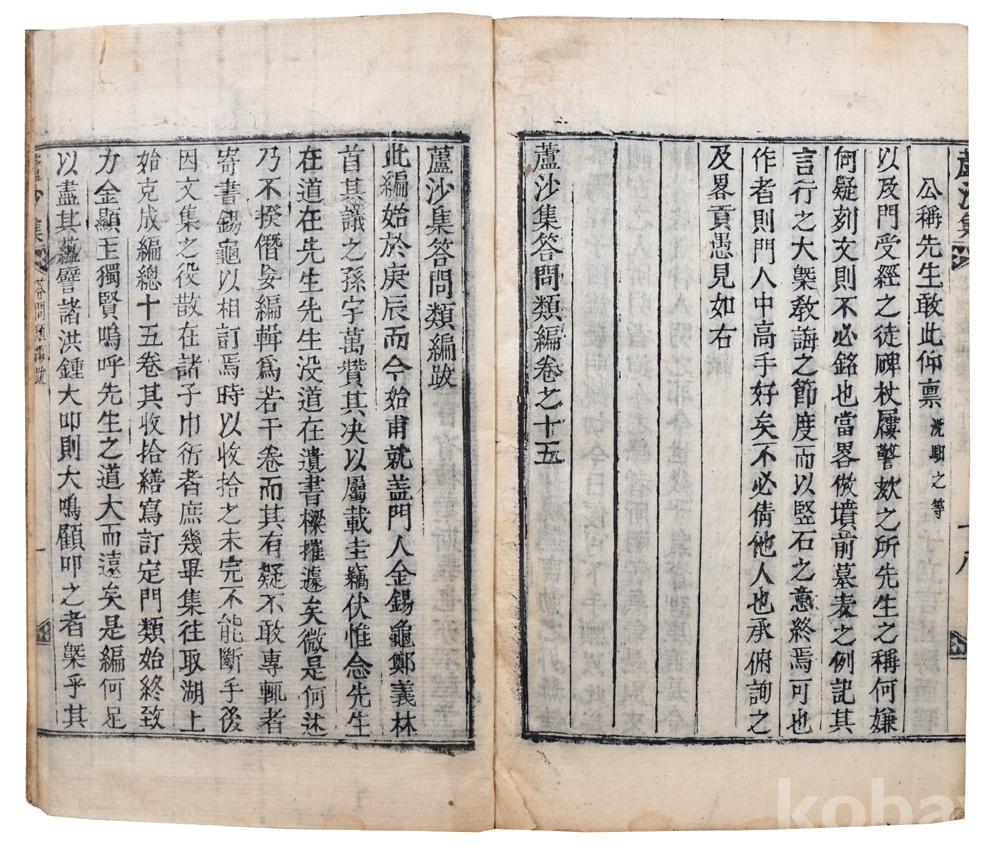 公稱先生敢此仰禀
以及門受經之徒碑杖屨警欬之所先生之稱何嫌
何疑刻文則不必銘也當畧倣墳前墓表之例記其
言行之大槩敎誨之節度而以竪石之意終焉可也
作者則門人中高手好矣不必倩他人也承俯詢之
及畧貢愚見如右
蘆沙集答問類編卷之十五
十八
蘆沙集答問類編跋
此編始於庚辰而今始甫就盖門人金錫龜鄭義林
首其議之孫宇萬贊其决以屬載圭竊伏惟念先生
在道在先生先生没道在遺書樑摧遽矣微是何述
乃不揆僭妄編輯爲若干卷而其有疑不敢專輒者
寄書錫龜以相訂焉時以收拾之未完不能斷手後
因文集之役散在諸子巾衍者庶幾畢集徃取湖上
始克成編總十五卷其收拾繕寫訂定門類始終致
力金顯玉獨賢嗚呼先生之道大而遠矣是編何足
以盡其蘊譬諸洪鍾大叩則大鳴顧叩之者槩乎其
蘆沙集
答問類編跋
一
kobay